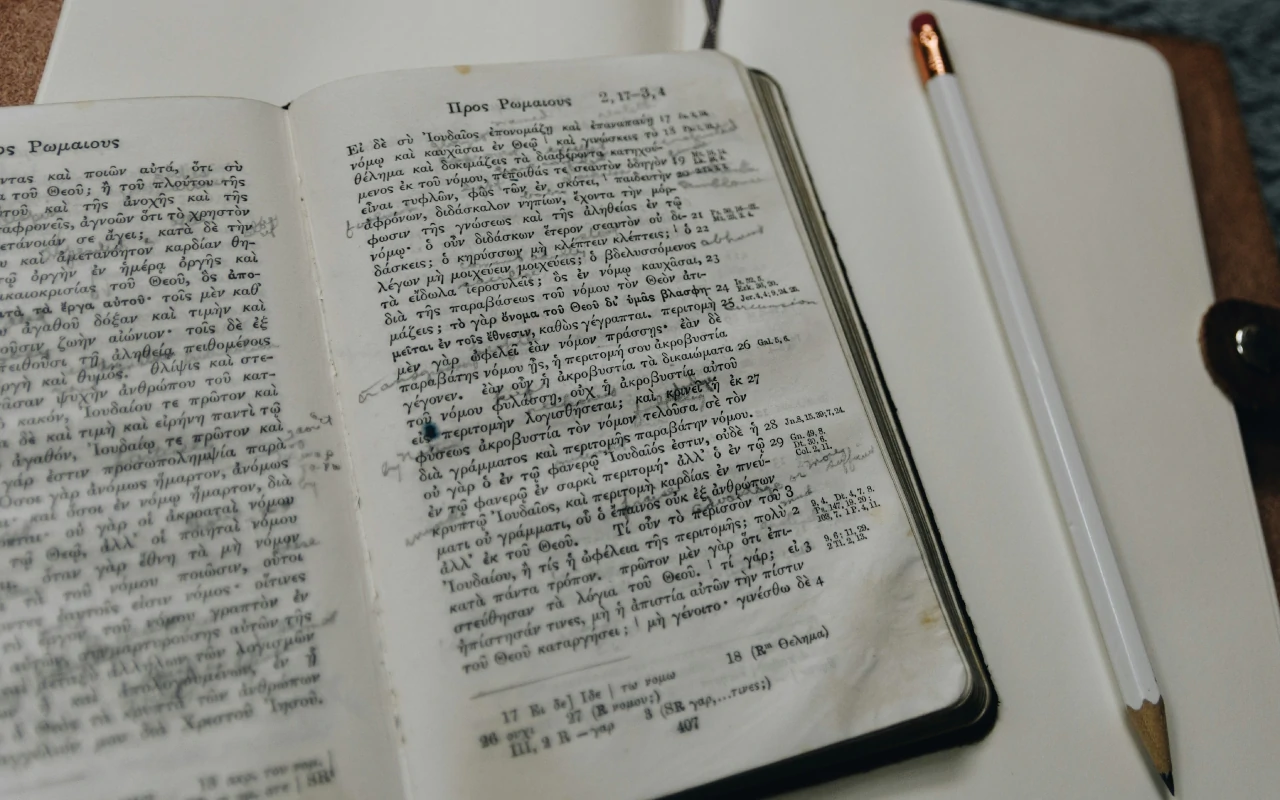 ος Ρωμαιους
ντας καὶ ποιῶν αὐτά, ὅτι σὺ
τοῦ Θεοῦ; ἢ τοῦ πλούτου τῆς
τοῦ καὶ τῆς ἀνοχῆς καὶ τῆς
αφρονεῖς, ἀγνοῶν ὅτι τὸ χρηστὸν
ετάνοιάν σε ἄγει; κατὰ δὲ τὴν
υ καὶ ἀμετανόητον καρδίαν θη-
ῷ ὀργὴν ἐν ἡμέρᾳ ὀργῆς καὶ
ικαιοκρισίας τοῦ Θεοῦ, ὃς ἀπο-
ατὰ τὰ ἔργα αὐτοῦ· τοῖς μὲν καθ’
υ ἀγαθοῦ δόξαν καὶ τιμὴν καὶ
οῦσιν, ζωὴν αἰώνιον· τοῖς δὲ ἐξ
πειθοῦσι τῇ ἀληθείᾳ πειθομένοις
ργὴ καὶ θυμός. θλῖψις καὶ στε-
ᾶσαν ψυχὴν ἀνθρώπου τοῦ κατ-
κακόν, Ἰουδαίου τε πρῶτον καὶ
α δὲ καὶ τιμὴ καὶ εἰρήνη παντὶ τῷ
ἀγαθόν, Ἰουδαίῳ τε πρῶτον καὶ
γάρ ἐστιν προσωπολημψία παρὰ
Ὅσοι γὰρ ἀνόμως ἥμαρτον, ἀνόμως
καὶ ὅσοι ἐν νόμῳ ἥμαρτον, διὰ
οὐ γὰρ οἱ ἀκροαταὶ νόμου
τῷ Θεῷ, ἀλλ’ οἱ ποιηταὶ νόμου
ὅταν γὰρ ἔθνη τὰ μὴ νόμον
τὰ τοῦ νόμου ποιῶσιν, οὗτοι
ἑαυτοῖς εἰσιν νόμος· οἵτινες
τὸ ἔργον τοῦ νόμου γραπτὸν ἐν
συμμαρτυρούσης αὐτῶν τῆς
καὶ μεταξὺ ἀλλήλων τῶν λογισμῶν
ἢ καὶ ἀπολογουμένων, ἐν ᾗ
ὁ Θεὸς τὰ κρυπτὰ τῶν ἀνθρώπων
αγγέλιόν μου διὰ Χριστοῦ Ἰησοῦ.
Προς Ρωμαιους 2,17–3,4
Εἰ δὲ σὺ Ἰουδαῖος ἐπονομάζῃ καὶ ἐπαναπαύῃ 17
νόμῳ καὶ καυχᾶσαι ἐν Θεῷ | καὶ γινώσκεις τὸ 18
θέλημα καὶ δοκιμάζεις τὰ διαφέροντα κατηχού-
μενος ἐκ τοῦ νόμου, πέποιθάς τε σεαυτὸν ὁδηγὸν 19
εἶναι τυφλῶν, φῶς τῶν ἐν σκότει, | παιδευτὴν 20
ἀφρόνων, διδάσκαλον νηπίων, ἔχοντα τὴν μόρ-
φωσιν τῆς γνώσεως καὶ τῆς ἀληθείας ἐν τῷ
νόμῳ· ὁ οὖν διδάσκων ἕτερον σεαυτὸν οὐ δι- 21
δάσκεις; ὁ κηρύσσων μὴ κλέπτειν κλέπτεις; | ὁ 22
λέγων μὴ μοιχεύειν μοιχεύεις; ὁ βδελυσσόμενος abhors
τὰ εἴδωλα ἱεροσυλεῖς; ὃς ἐν νόμῳ καυχᾶσαι, 23
διὰ τῆς παραβάσεως τοῦ νόμου τὸν Θεὸν ἀτι-
μάζεις; τὸ γὰρ ὄνομα τοῦ Θεοῦ δι’ ὑμᾶς βλασφη- 24
μεῖται ἐν τοῖς ἔθνεσιν, καθὼς γέγραπται. περιτομὴ 25 Jer. 4, 4; 9, 24. 25.
μὲν γὰρ ὠφελεῖ ἐὰν νόμον πράσσῃς· ἐὰν δὲ
παραβάτης νόμου ᾖς, ἡ περιτομή σου ἀκροβυστία
γέγονεν. ἐὰν οὖν ἡ ἀκροβυστία τὰ δικαιώματα 26 Gal. 5, 6.
τοῦ νόμου φυλάσσῃ, οὐχ ἡ ἀκροβυστία αὐτοῦ
εἰς περιτομὴν λογισθήσεται; καὶ κρινεῖ ἡ ἐκ 27
φύσεως ἀκροβυστία τὸν νόμον τελοῦσα σὲ τὸν
διὰ γράμματος καὶ περιτομῆς παραβάτην νόμου.
οὐ γὰρ ὁ ἐν τῷ φανερῷ Ἰουδαῖός ἐστιν, οὐδὲ ἡ 28 Jn. 8, 15. 39; 7, 24.
ἐν τῷ φανερῷ ἐν σαρκὶ περιτομή· ἀλλ’ ὁ ἐν τῷ 29 Gn. 49, 8.
Dt. 30, 6.
Col. 2, 11.
κρυπτῷ Ἰουδαῖος, καὶ περιτομὴ καρδίας ἐν πνεύ-
ματι οὐ γράμματι, οὗ ὁ ἔπαινος οὐκ ἐξ ἀνθρώπων
ἀλλ’ ἐκ τοῦ Θεοῦ. Τί οὖν τὸ περισσὸν τοῦ 3
Ἰουδαίου, ἢ τίς ἡ ὠφέλεια τῆς περιτομῆς; πολὺ 2 9, 4. Dt. 4, 7. 8.
Ps. 147, 19. 20;
103, 7. 1 P. 4, 11.
κατὰ πάντα τρόπον. πρῶτον μὲν γὰρ ὅτι ἐπι-
στεύθησαν τὰ λόγια τοῦ Θεοῦ. | τί γάρ; εἰ 3 9, 6; 11, 29.
2 Ti. 2, 13.
ἠπίστησάν τινες, μὴ ἡ ἀπιστία αὐτῶν τὴν πίστιν
τοῦ Θεοῦ καταργήσει; | μὴ γένοιτο· γινέσθω δὲ 4
17 Ει δε] Ιδε | τω νομω 18 (Rᵐ Θελημα)
26 ουχι 27 (R νομου;) 3 (SR γαρ,...τινες;)
III, 2 R –γαρ
407